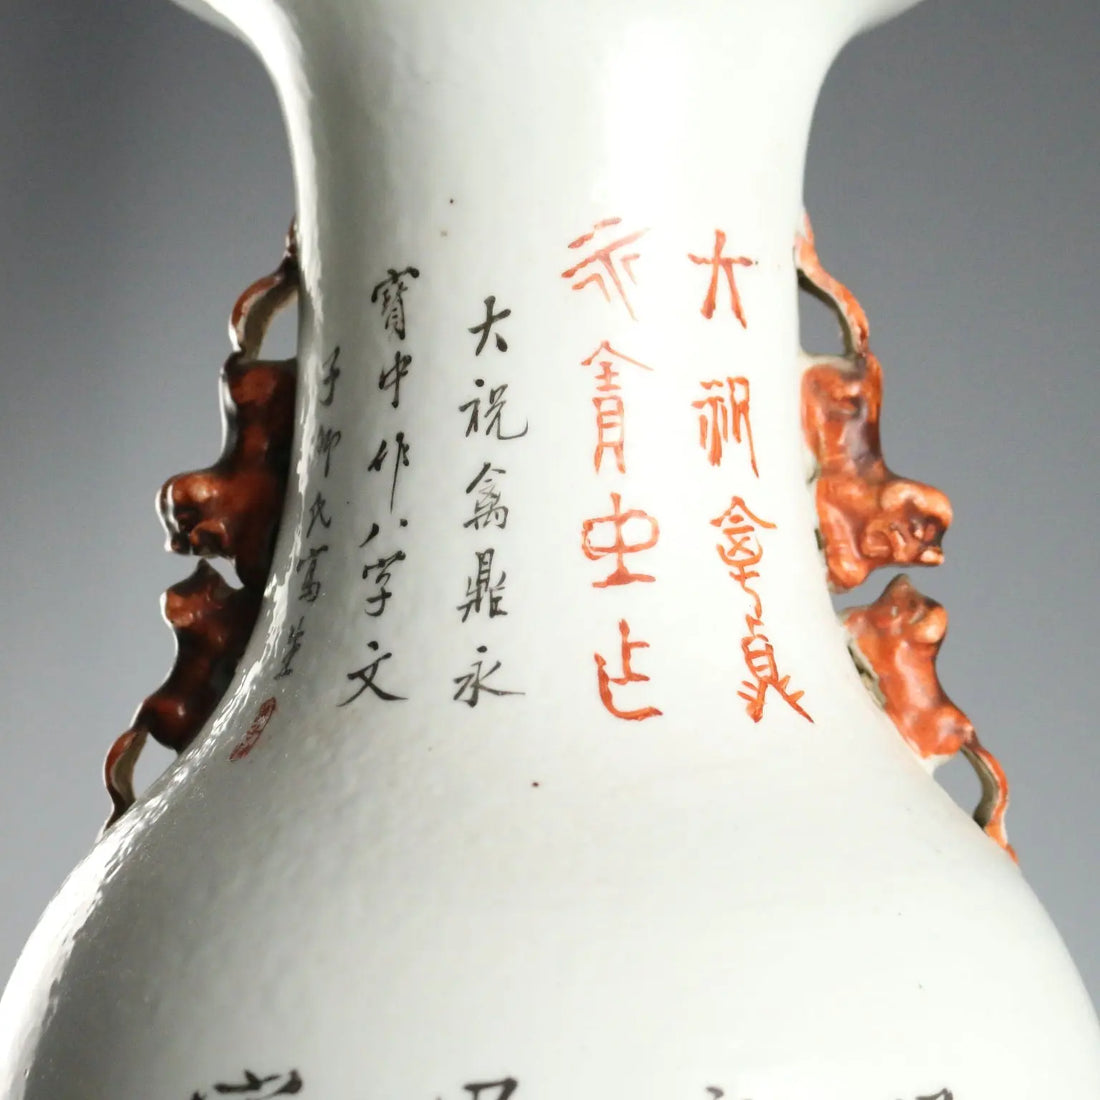 大祝禽鼎
永寶中乍
大祝禽鼎永
寶中作八字文
子卿氏寫